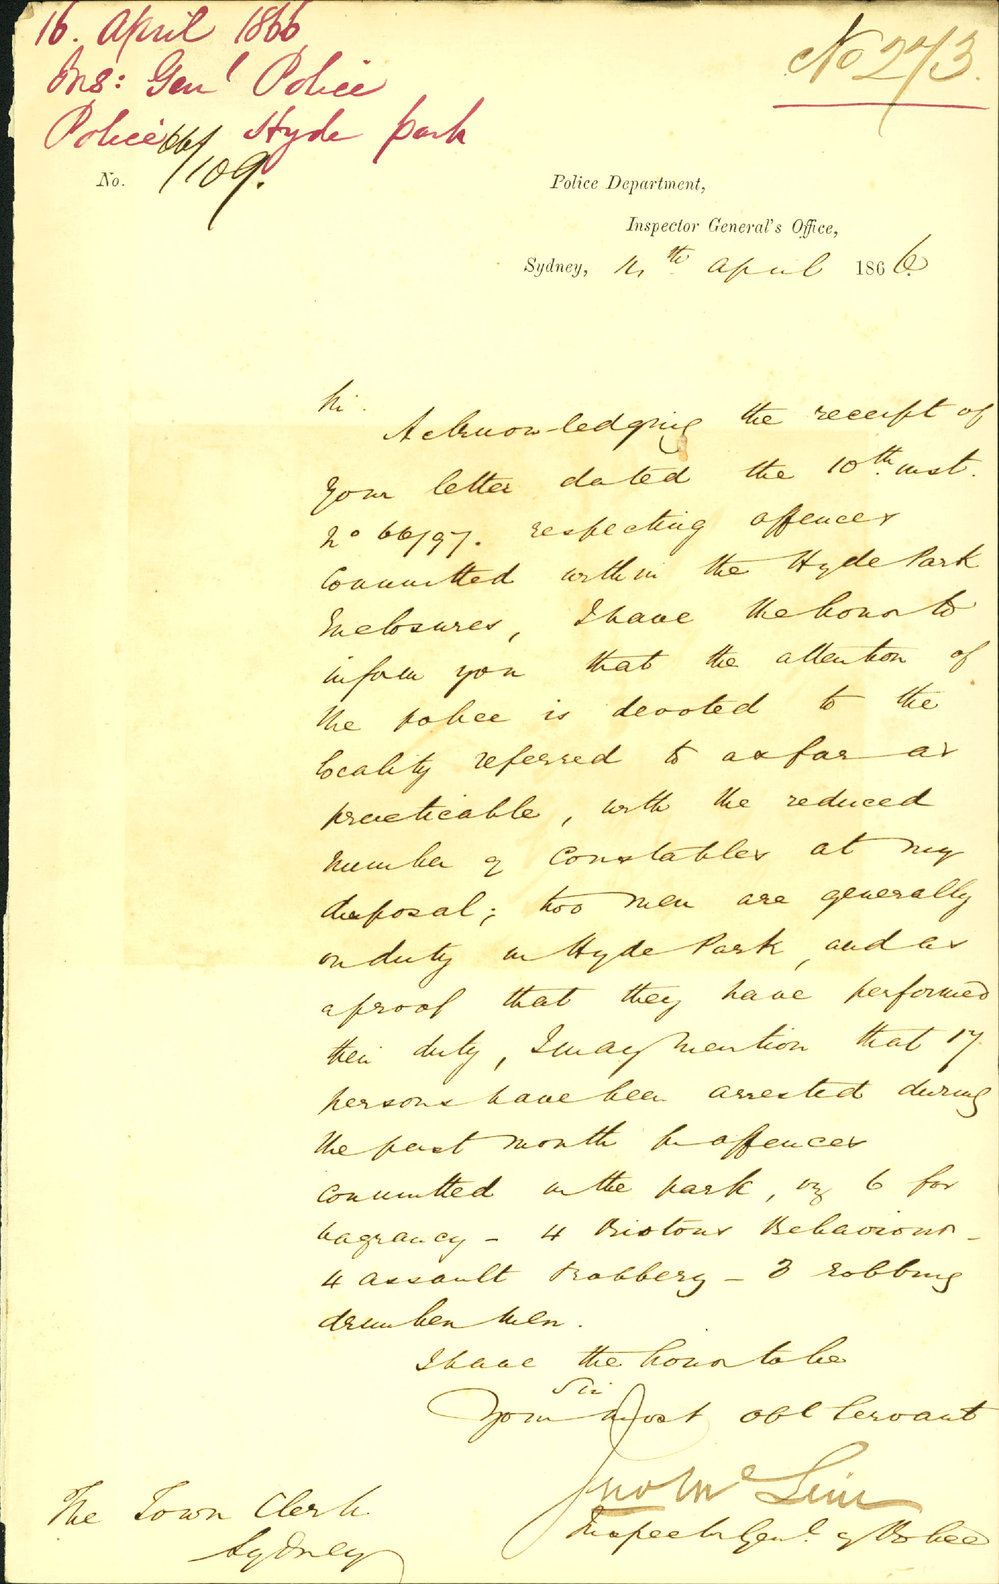 16. April 1866
Ins: Genl Police
Police Hyde park
No. 66/109.
No 273.
Police Department,
Inspector General's Office,
Sydney, th April 1866.
Sir.
Acknowledging the receipt of
your letter dated the 10th inst.
No 66/97. respecting offences
Committed within the Hyde Park
Enclosures, I have the honor to
inform you that the attention of
the police is devoted to the
locality referred to as far as
practicable, with the reduced
number of Constables at my
disposal; two men are generally
on duty in Hyde Park, and as
a proof that they have performed
their duty, I may mention that 17
persons have been arrested during
the past month for offences
committed in the park, viz 6 for
vagrancy - 4 Riotous Behaviour -
4 assault & robbery - 3 robbing
drunken men.
I have the honor to be
Sir
Your most obt Servant
Jno McLerie
Inspector Genl. of Police
The Town Clerk
Sydney